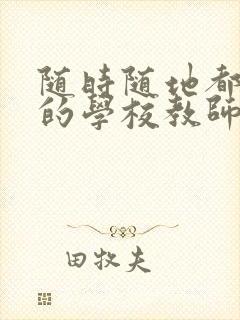 随時随地都
的學校教師
田牧夫